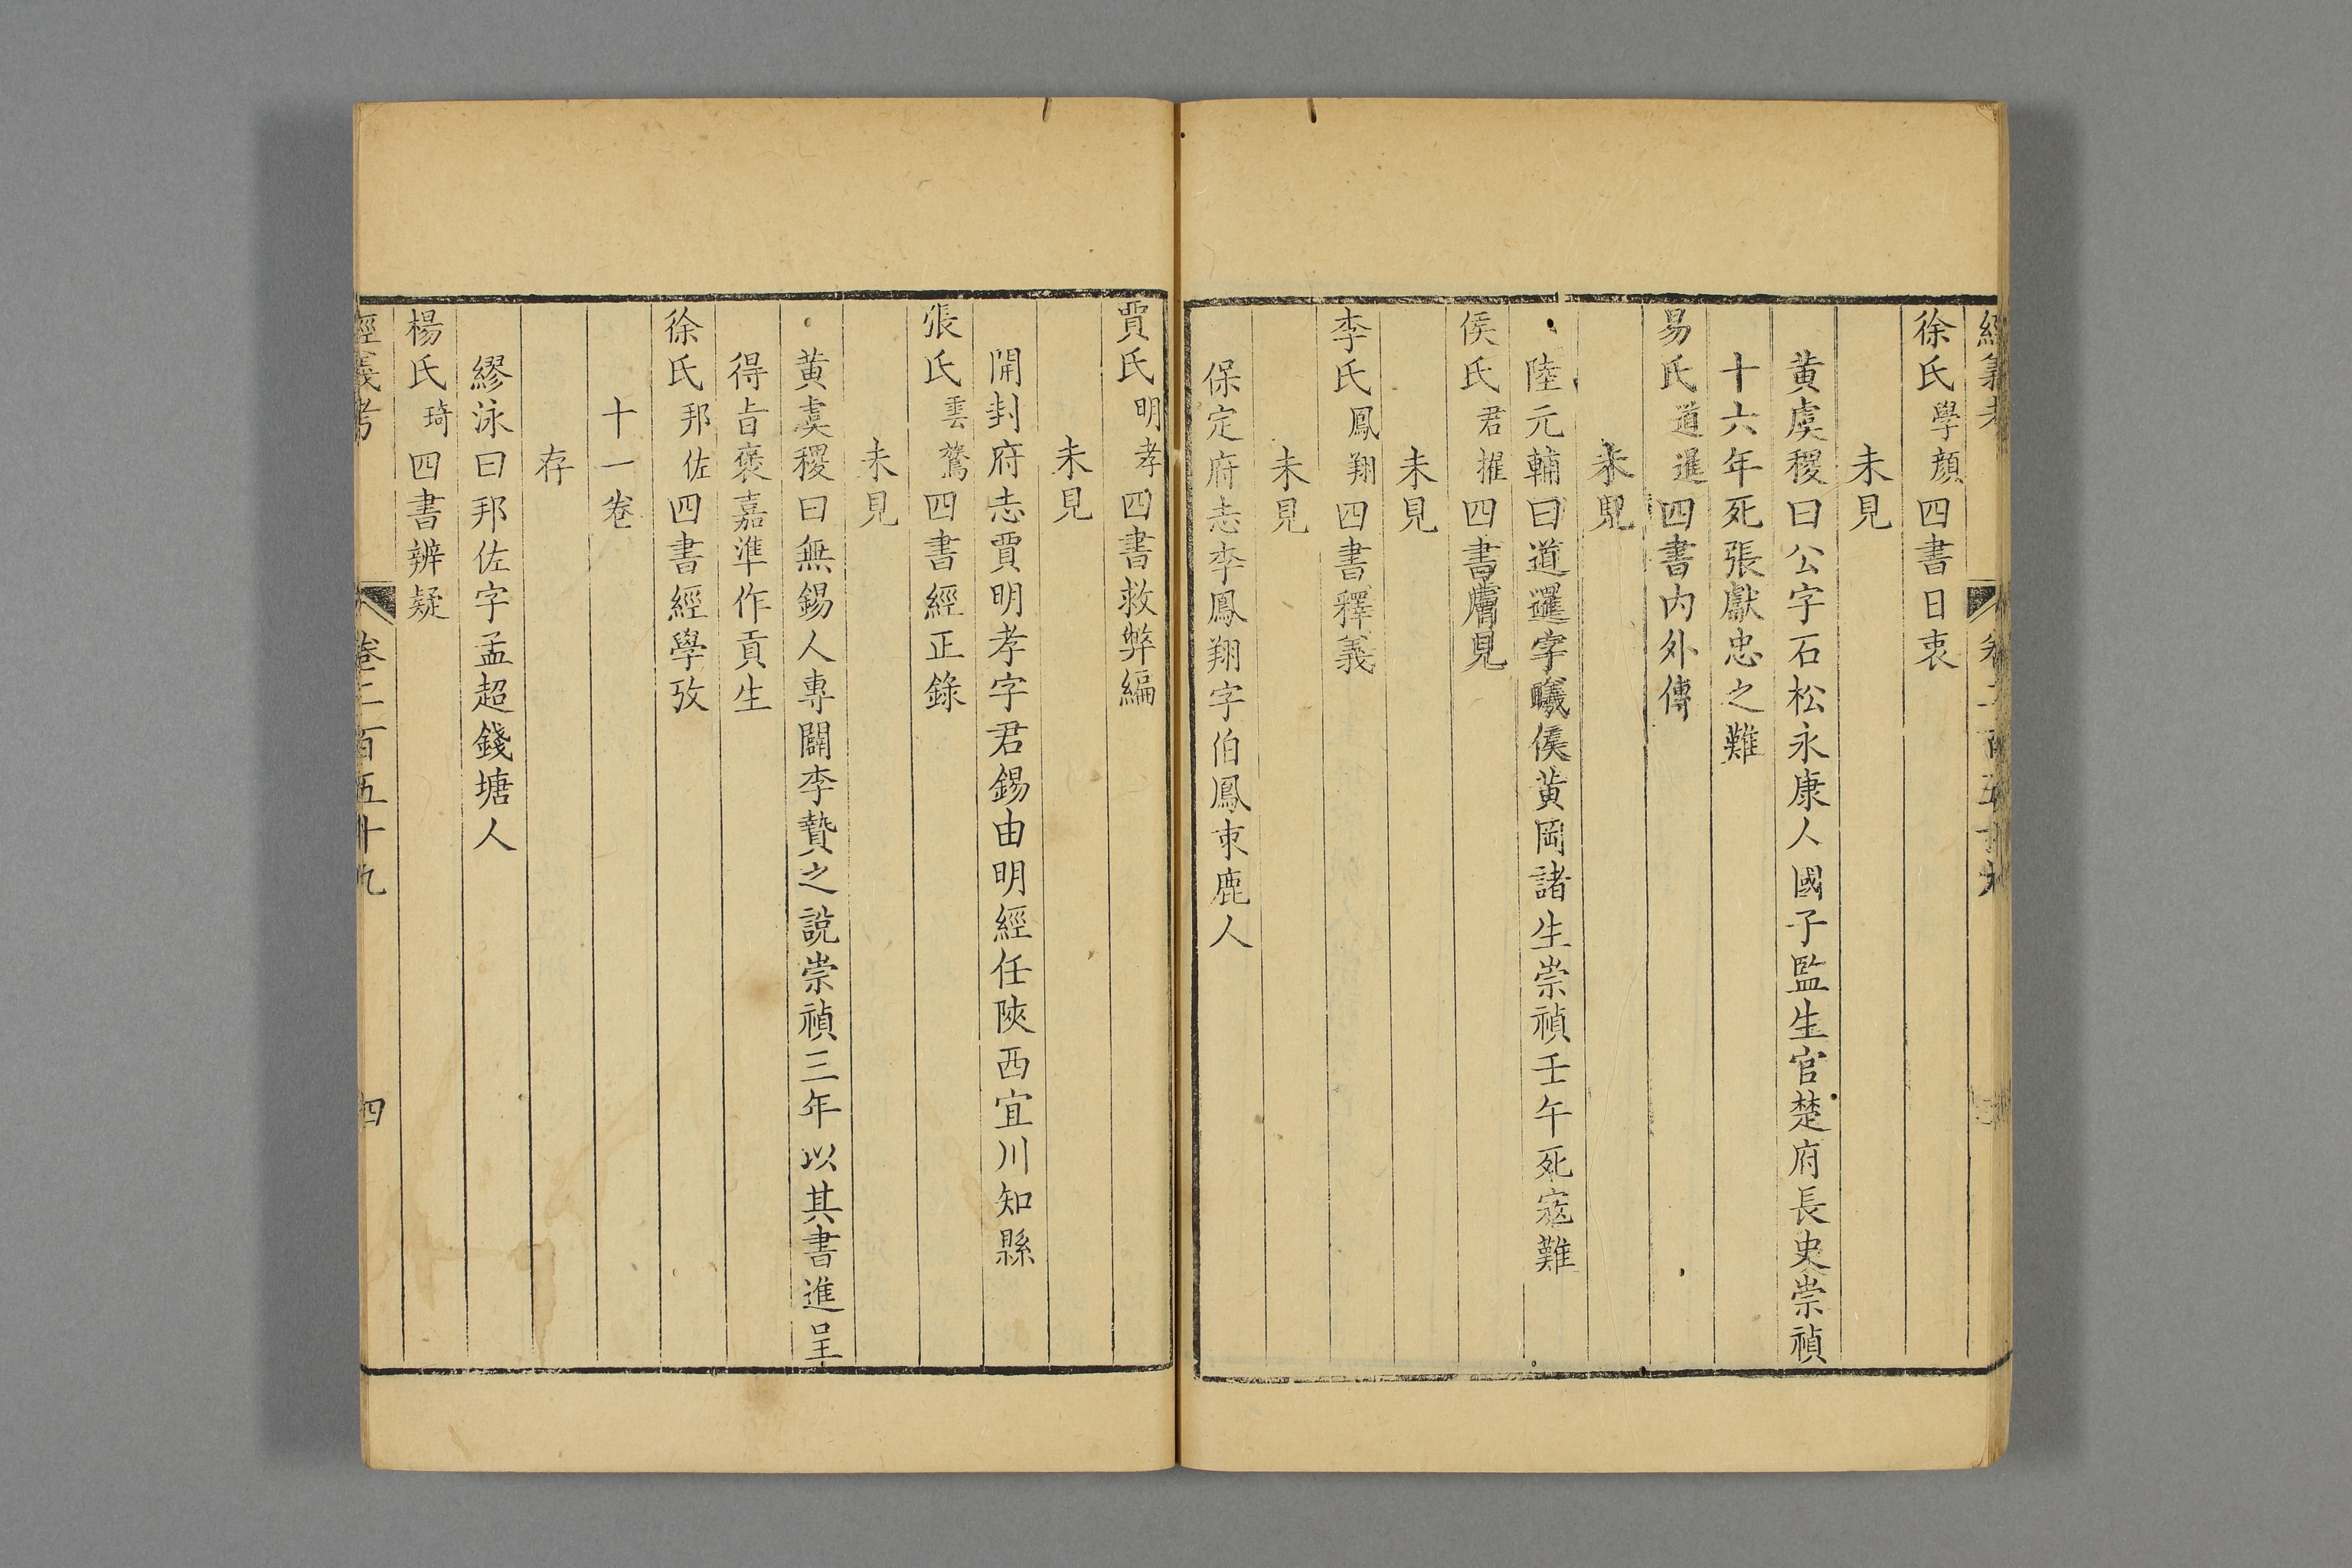 經義考 卷二百五十九
徐氏學顏四書日衷
未見
黃虞稷曰公字石松永康人國子監生官楚府長史崇禎
十六年死張獻忠之難
易氏道暹四書內外傳
未見
陸元輔曰道暹字曦侯黃岡諸生崇禎壬午死寇難
侯氏君擢四書膚見
未見
李氏鳳翔四書釋義
未見
保定府志李鳳翔字伯鳳束鹿人
賈氏明孝四書救弊編
未見
開封府志賈明孝字君錫由明經任陝西宜川知縣
張氏雲鸑四書經正錄
未見
黃虞稷曰無錫人專闢李贄之說崇禎三年以其書進呈
得旨褒嘉準作貢生
徐氏邦佐四書經學攷
十一卷
存
繆泳曰邦佐字孟超錢塘人
楊氏琦四書辨疑
經義考 卷二百五十九 四